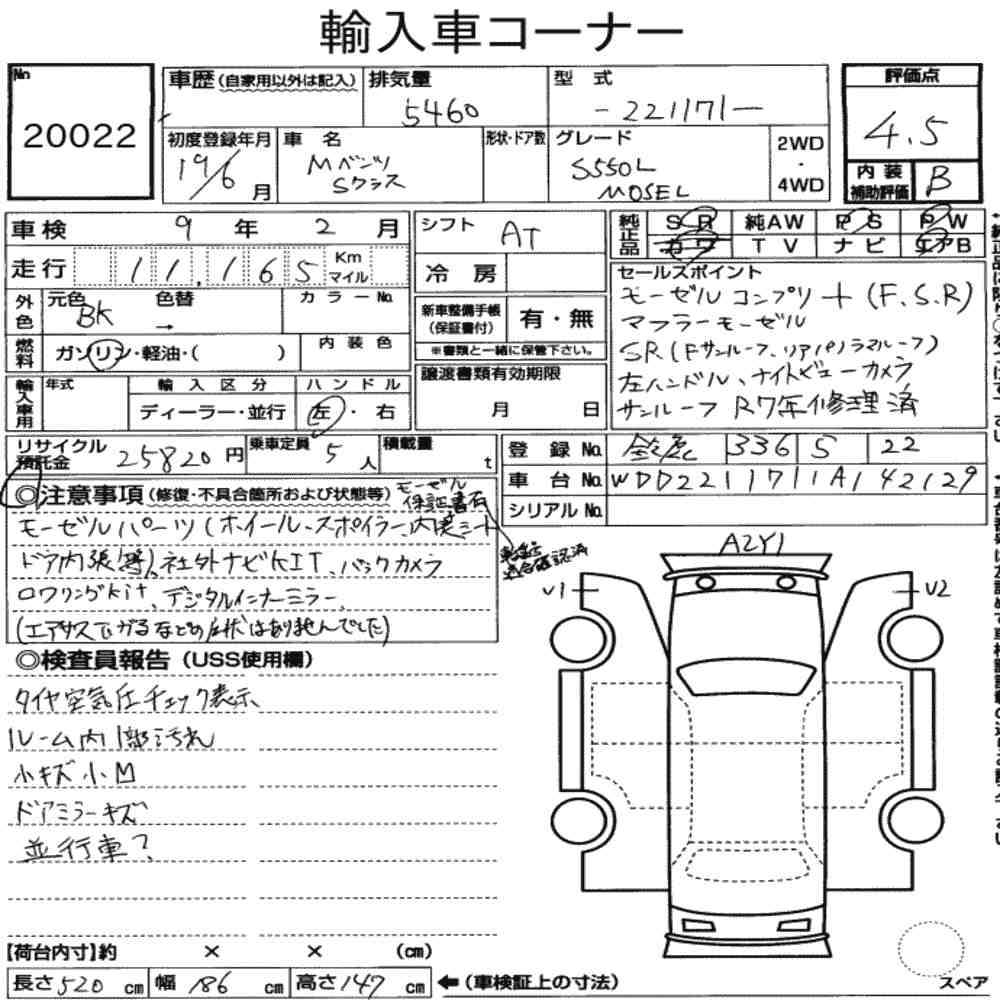 輸入車コーナー
No
20022
車歴(自家用以外は記入)
排気量
5460
型式
-221171-
評価点
4.5
初度登録年月
19/6月
車名
Mベンツ
Sクラス
形状・ドア数
グレード
S550L
MOSEL
2WD
・
4WD
内装
補助評価
B
車検 9年 2月
走行 11,165 Km
マイル
シフト
AT
冷房
純正品
SR 純AW PS PW
カワ TV ナビ エアB
外色
元色
BK
色替
→
カラーNo.
燃料
ガソリン・軽油・( )
内装色
新車整備手帳
(保証書付)
有・無
※書類と一緒に保管下さい。
輸入車用
年式
輸入区分
ディーラー・並行
ハンドル
左・右
譲渡書類有効期限
月 日
セールスポイント
モーゼル コンプリート(F.S.R)
マフラーモーゼル
SR(Fサンルーフ、リアパノラマルーフ)
左ハンドル、ナイトビューカメラ
サンルーフ R7年修理済
リサイクル
預託金
25820円
乗車定員 5人
積載量 t
登録No. 336 S 22
車台No. WDD2211711A142129
シリアルNo.
◎注意事項(修復・不具合箇所および状態等)
モーゼル
保証書有
モーゼルパーツ(ホイール、スポイラー、内装シート
ドア内張等)、社外ナビKIT、バックカメラ
ロワリングkit、デジタルインナーミラー、
(エアサス下がるなどの症状はありませんでした)
適合確認済
◎検査員報告(USS使用欄)
タイヤ空気圧チェック表示
ルーム内1部汚れ
小キズ小凹
ドアミラーキズ
並行車?
A2Y1
U1
U2
【荷台内寸】約 × × (cm)
長さ520cm 幅186cm 高さ147cm
←(車検証上の寸法)
スペア